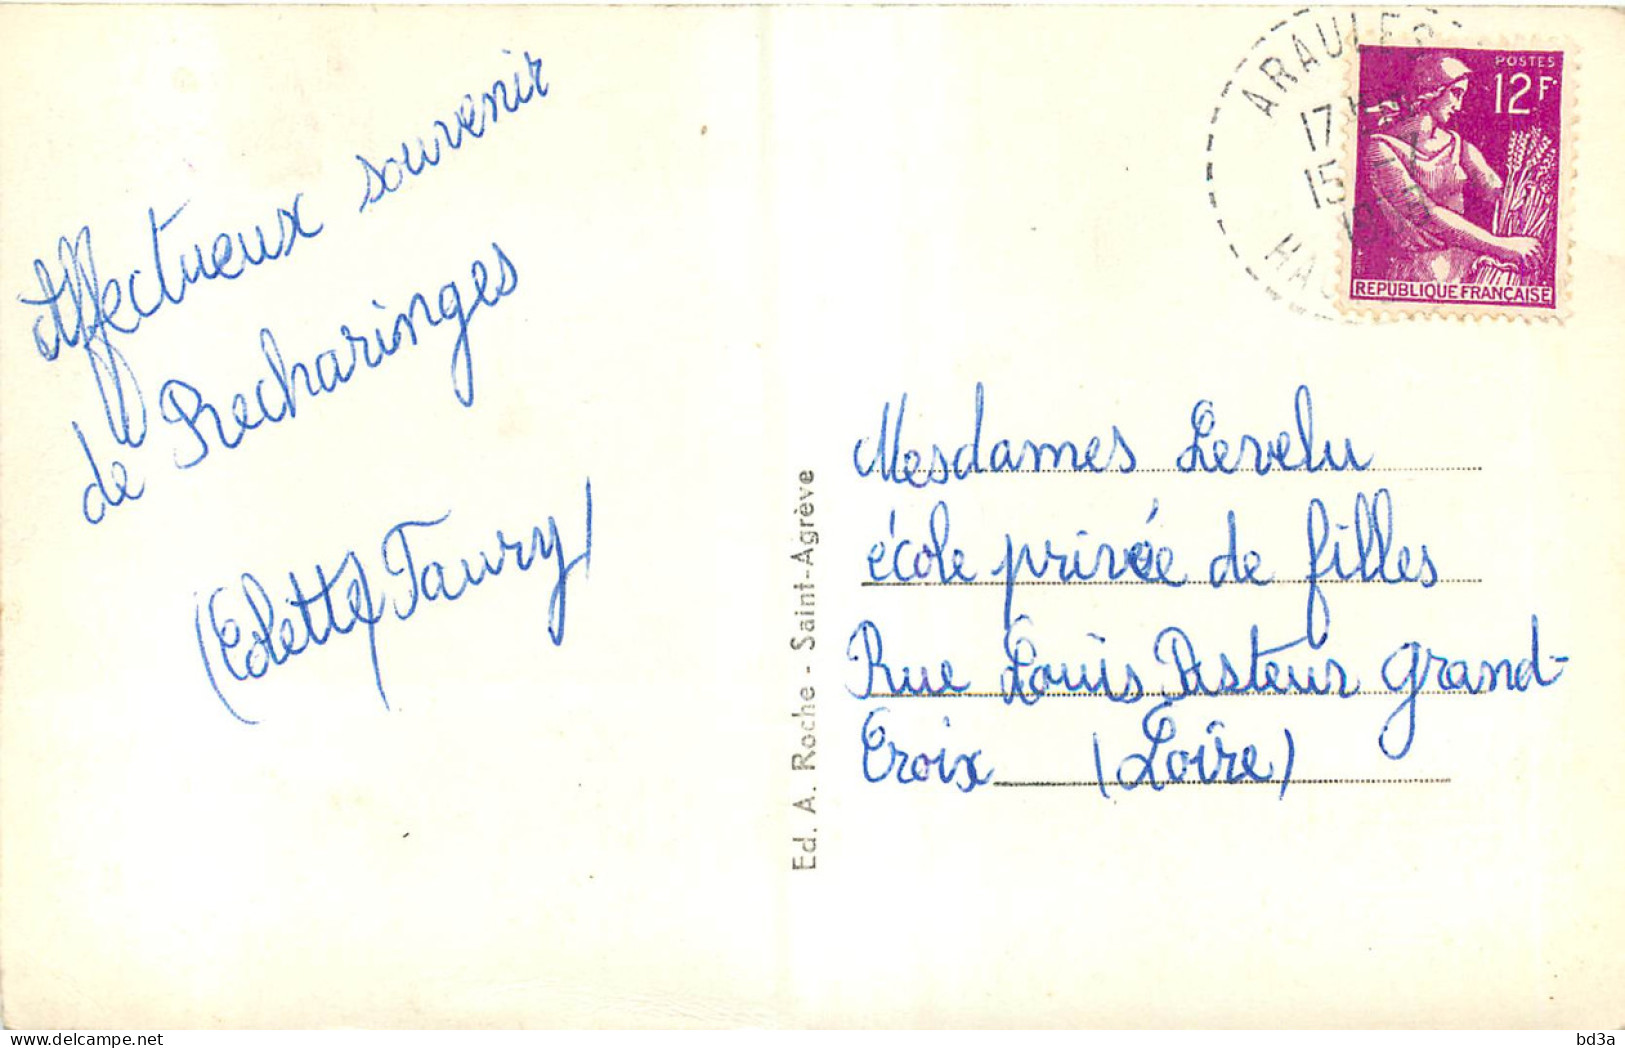 Affectueux souvenir
de Recharinges
(Colette Taury)
Ed. A. Roche - Saint-Agrève
ARAULES
17
15 -7
HAU
POSTES
12F.
REPUBLIQUE FRANÇAISE
Mesdames Levelu
école privée de filles
Rue Louis Pasteur Grand-
Croix (Loire)
bd3a